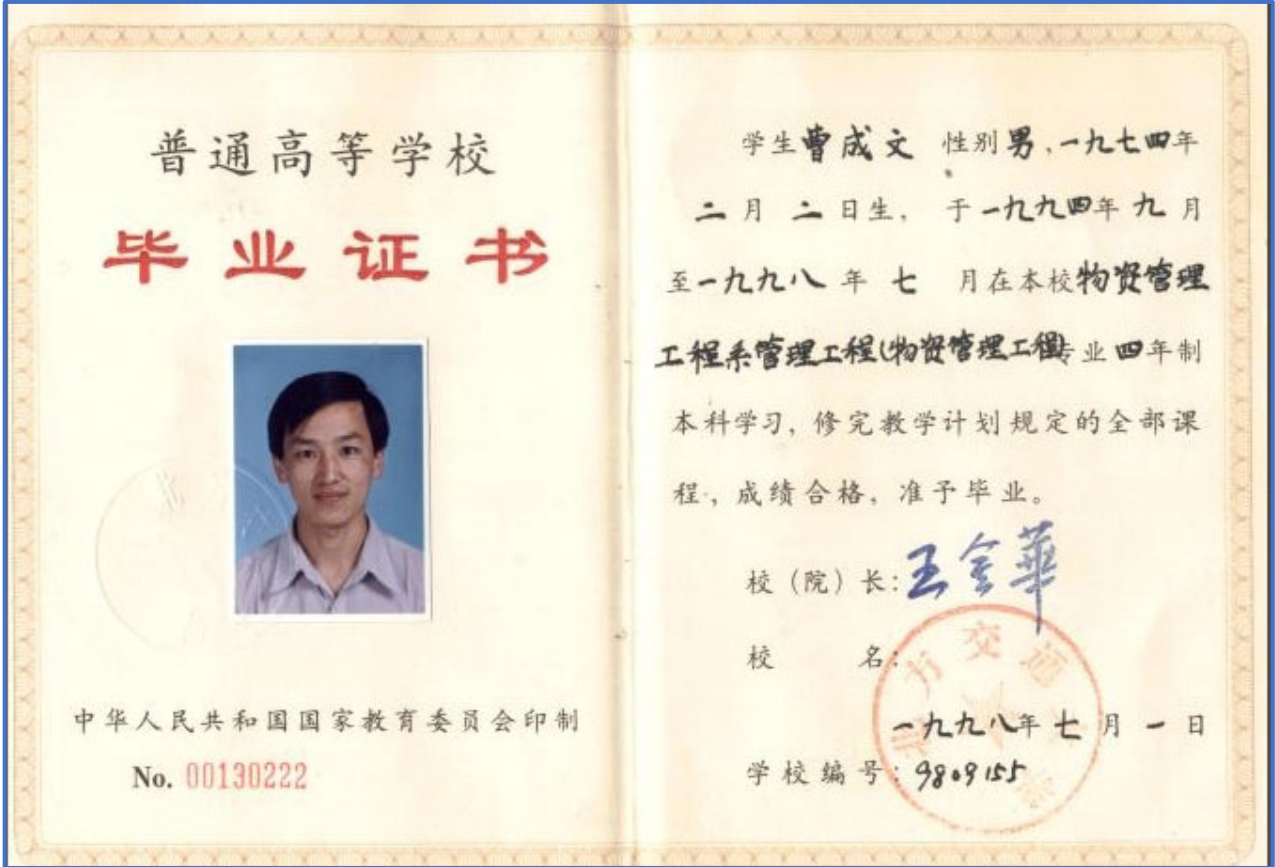 普通高等学校
毕业证书
中华人民共和国国家教育委员会印制
No. 00130222
学生曹成文 性别男,一九七四年
二月二日生, 于一九九四年九月
至一九九八年七月在本校物资管理
工程系管理工程(物资管理工程)专业四年制
本科学习, 修完教学计划规定的全部课
程, 成绩合格, 准予毕业。
校(院)长: 王金華
校名:
北方交通
一九九八年七月一日
学校编号: 9809155